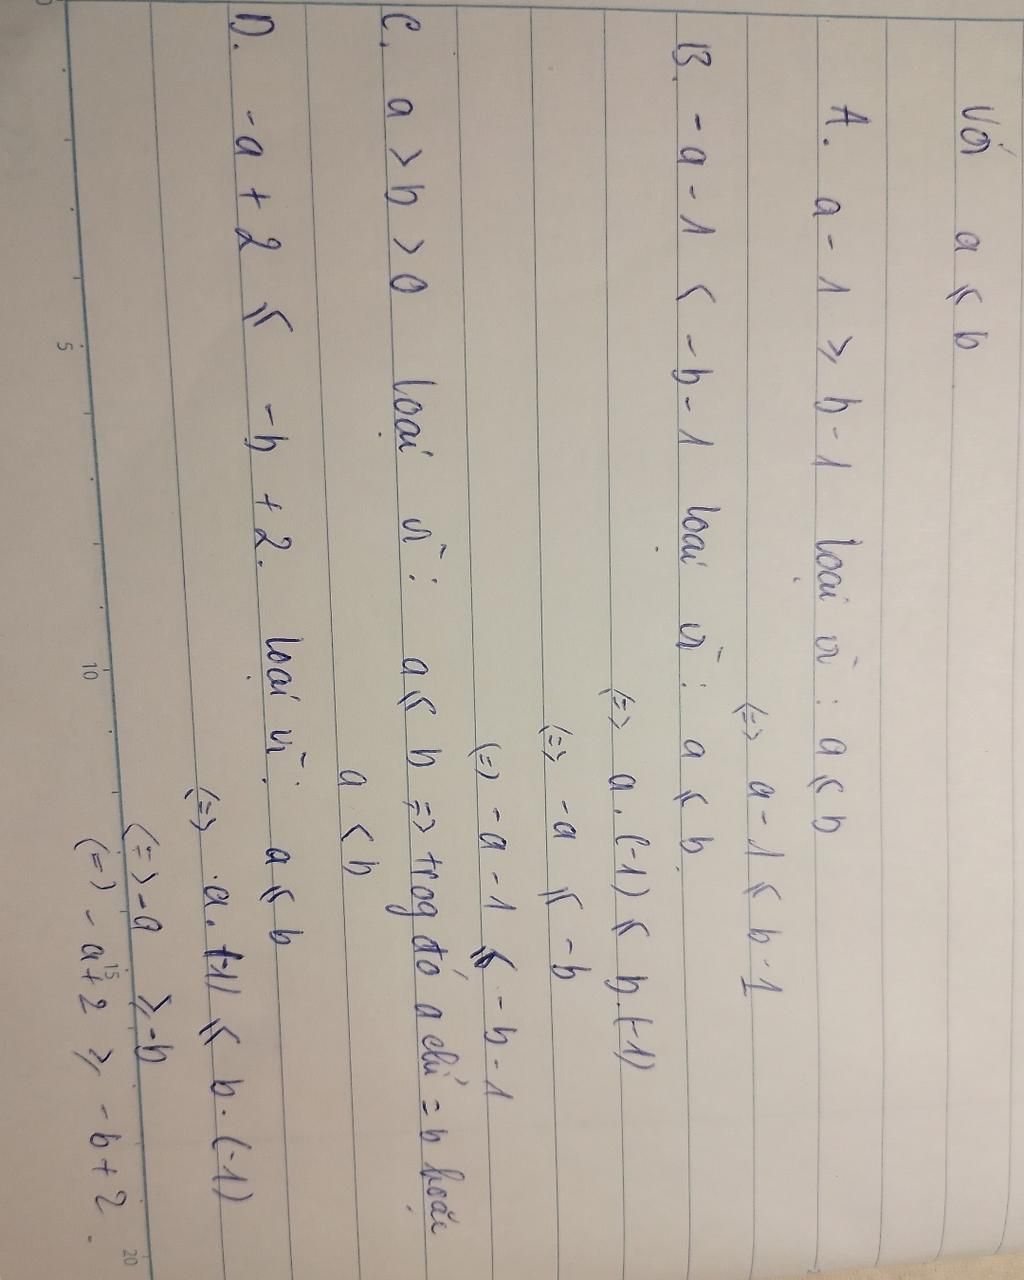 Với a ⩽ b
A. a - 1 ⩾ b - 1 loại vì : a ⩽ b
(=) a - 1 ⩽ b - 1
B. - a - 1 < - b - 1 loại vì : a ⩽ b
(=) a . (-1) ⩽ b . (-1)
(=) - a ⩽ - b
(=) - a - 1 ⩽ - b - 1
C. a > b > 0 loại vì : a ⩽ b => trog đó a chỉ = b hoặc
a < b
D. - a + 2 ⩽ - b + 2. loại vì : a ⩽ b
(=) a . (-1) ⩽ b . (-1)
(=) - a ⩾ - b
(=) - a + 2 ⩾ - b + 2 .
5
10
15
20